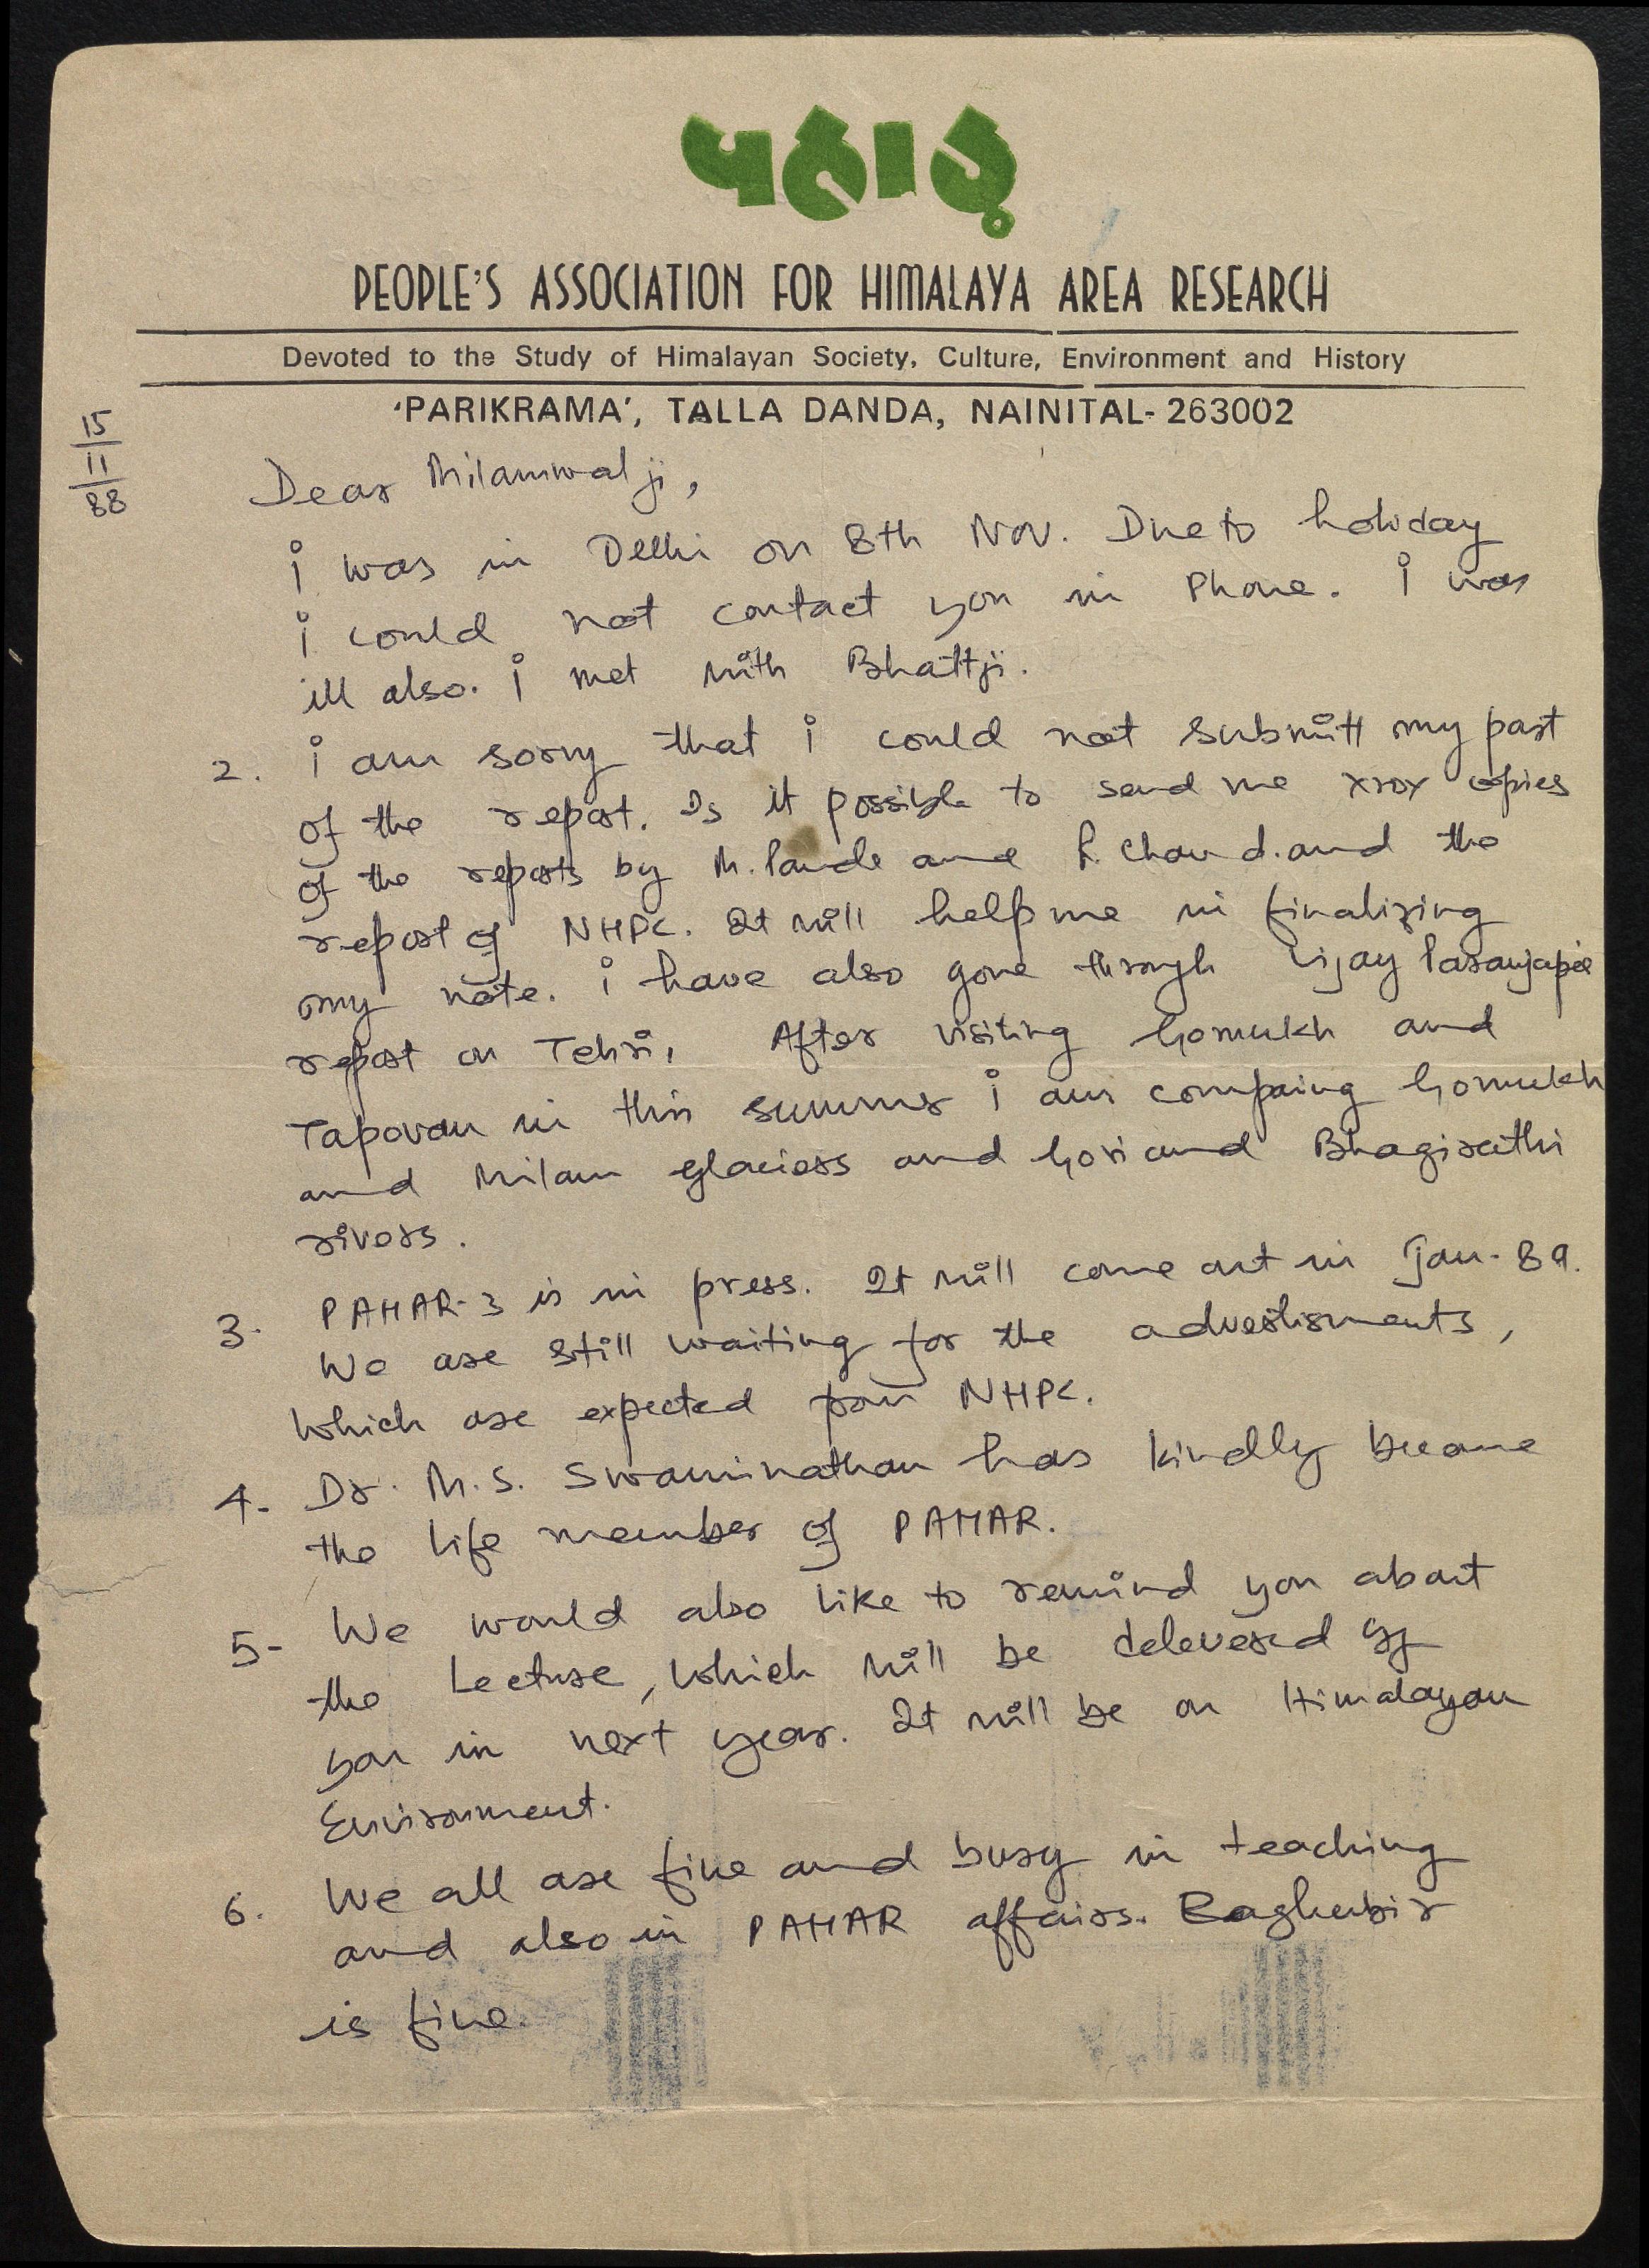 पहाड़
PEOPLE'S ASSOCIATION FOR HIMALAYA AREA RESEARCH
Devoted to the Study of Himalayan Society, Culture, Environment and History
'PARIKRAMA', TALLA DANDA, NAINITAL-263002
15
11
88
Dear Milamwal ji,
i was in Delhi on 8th Nov. Due to holiday
i could not contact you in Phone. i was
ill also. i met with Bhattji.
2. i am sorry that i could not submitt my part
of the report. Is it possible to send me xrox copies
of the reports by M. Pande and R. Chand. and the
report of NHPC. It will help me in finalizing
my note. i have also gone through Vijay Paranjapee
report on Tehri, After visiting Gomukh and
Tapovan in this summer i am compaing Gomukh
and Milam glaciers and Gori and Bhagirathi
rivers.
3. PAHAR-3 is in press. It will come out in Jan-89.
We are still waiting for the advertisments,
which are expected from NHPC.
4. Dr. M.S. Swaminathan has kindly became
the life member of PAHAR.
5- We would also like to remind you about
the Lecture, which will be delevered by
you in next year. It will be on Himalayan
Environment.
6. We all are fine and busy in teaching
and also in PAHAR affairs. Raghubir
is fine.